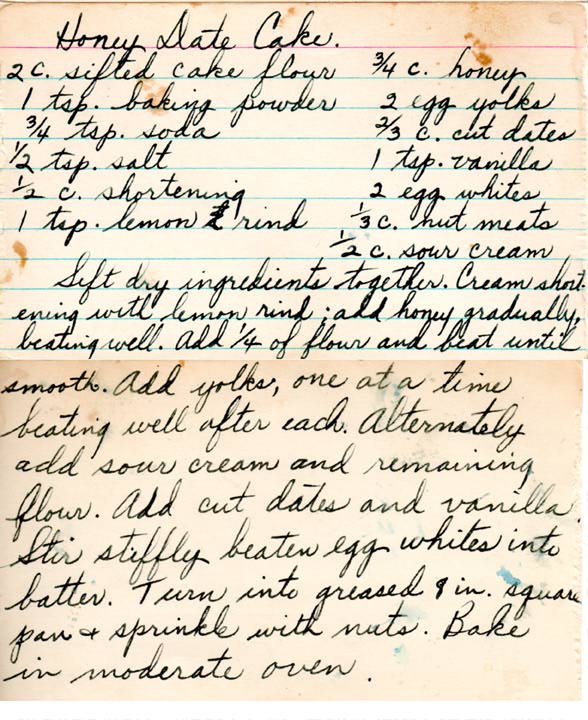 Honey Date Cake.
2 c. sifted cake flour
1 tsp. baking powder
3/4 tsp. soda
1/2 tsp. salt
1/2 c. shortening
1 tsp. lemon rind
3/4 c. honey
2 egg yolks
2/3 c. cut dates
1 tsp. vanilla
2 egg whites
1/3 c. nut meats
1/2 c. sour cream
Sift dry ingredients together. Cream short-
ening with lemon rind; add honey gradually,
beating well. Add 1/4 of flour and beat until
smooth. Add yolks, one at a time
beating well after each. Alternately
add sour cream and remaining
flour. Add cut dates and vanilla.
Stir stiffly beaten egg whites into
batter. Turn into greased 8 in. square
pan + sprinkle with nuts. Bake
in moderate oven.